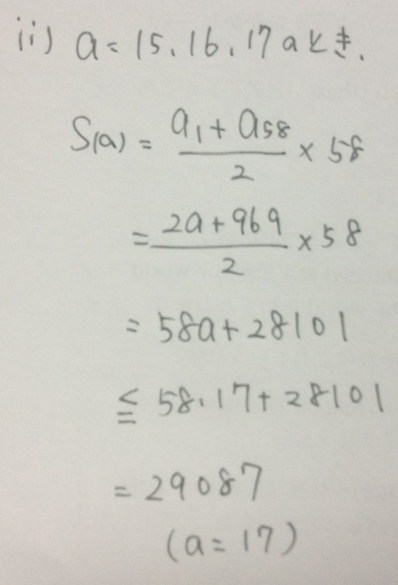 ii) a=15.16.17aとき.
S(a) = (a₁+a₅₈)/2 × 58
= (2a+969)/2 × 58
= 58a+28101
≦ 58.17+28101
= 29087
(a=17)